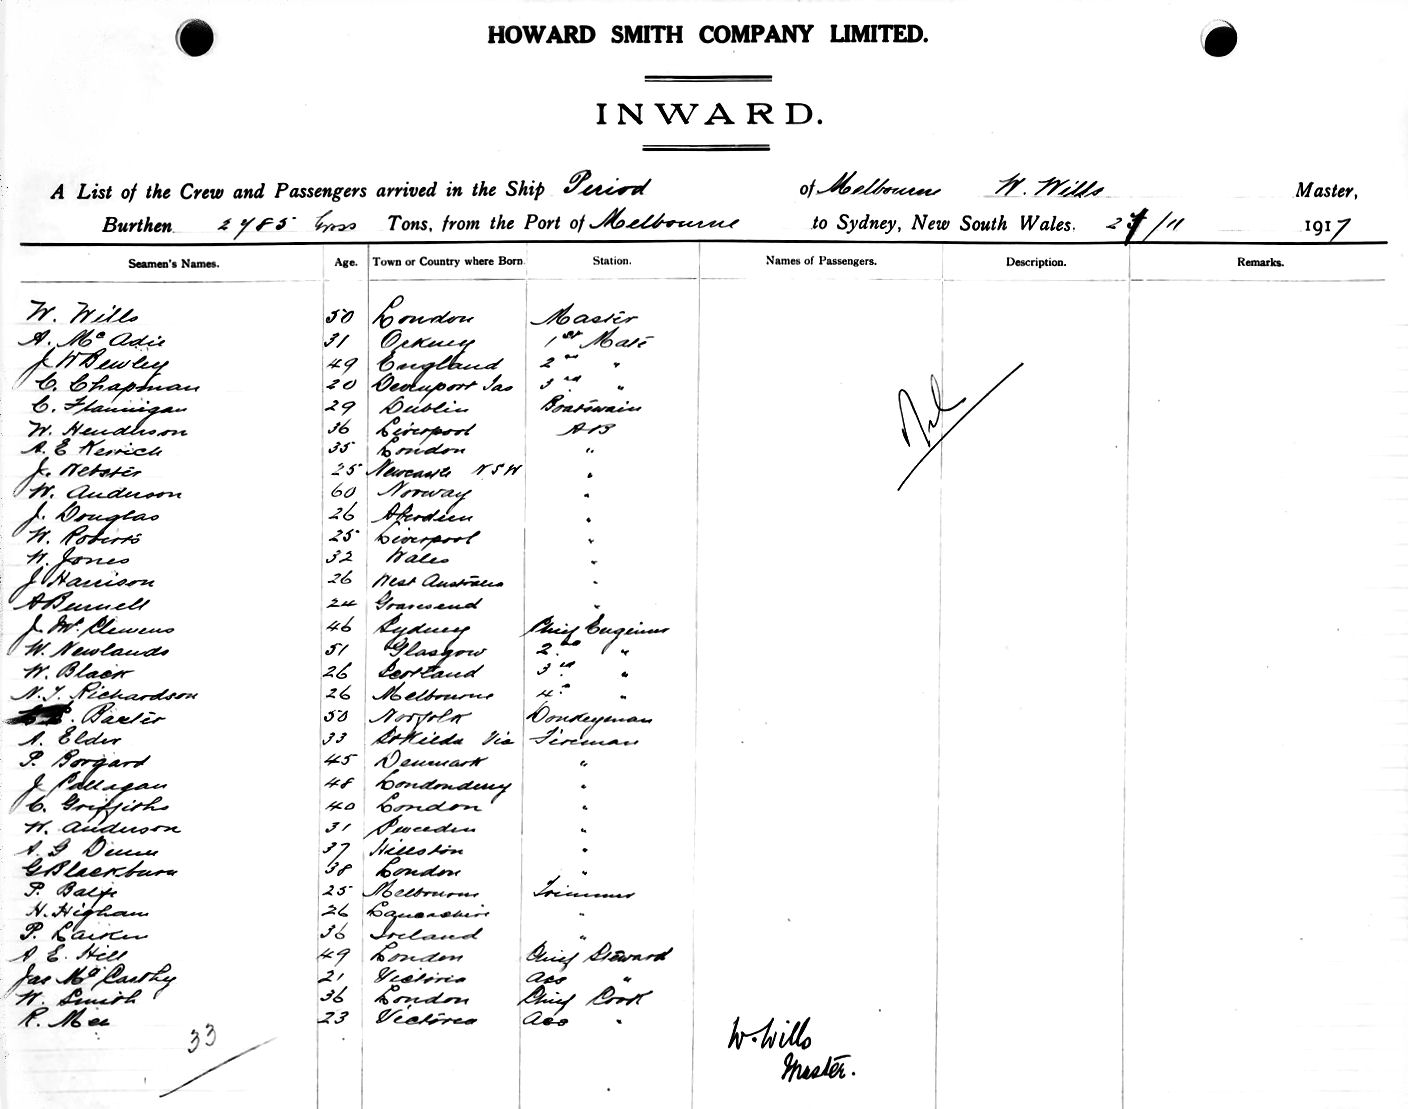 HOWARD SMITH COMPANY LIMITED.
INWARD.
A List of the Crew and Passengers arrived in the Ship Period of Melbourne W. Wills Master,
Burthen 2785 Gross Tons, from the Port of Melbourne to Sydney, New South Wales. 27/11 1917
Seamen's Names. Age. Town or Country where Born Station. Names of Passengers. Description. Remarks.
W. Wills 50 London Master
A. McAdie 31 Orkney 1st Mate
J W Bewley 49 England 2nd "
C. Chapman 20 Devenport Tas 3rd "
C. Flannigan 29 Dublin Boatswain
W. Henderson 36 Liverpool AB
A. E Kerrich 35 London "
J. Webster 25 Newcastle NSW "
W. Anderson 60 Norway "
J. Douglas 26 Aberdeen "
W. Roberts 25 Liverpool "
W. Jones 32 Wales "
J Harrison 26 West Australia "
A Burnell 24 Gravesend "
J. Mc Clemens 46 Sydney Chief Engineer
W. Newlands 51 Glasgow 2nd "
W. Black 26 Scotland 3rd "
N. J. Richardson 26 Melbourne 4th "
Baxter 50 Norfolk Donkeyman
A. Elder 33 St Kilda Vic Fireman
P. Borgard 45 Denmark "
J Callagan 48 Londonderry "
C. Griffiths 40 London "
W. Anderson 31 Sweeden "
A. G Dunn 37 Hillston "
G Blackburn 38 London "
P. Balfe 25 Melbourne Trimmer
H. Higham 26 Lancashire "
P. Larkin 36 Ireland "
A E. Hill 49 London Chief Steward
Jas McCarthy 21 Victoria Ass "
W. Smith 36 London Chief Cook
R. Mee 23 Victoria Ass "
33
Nil
W. Wills
Master.